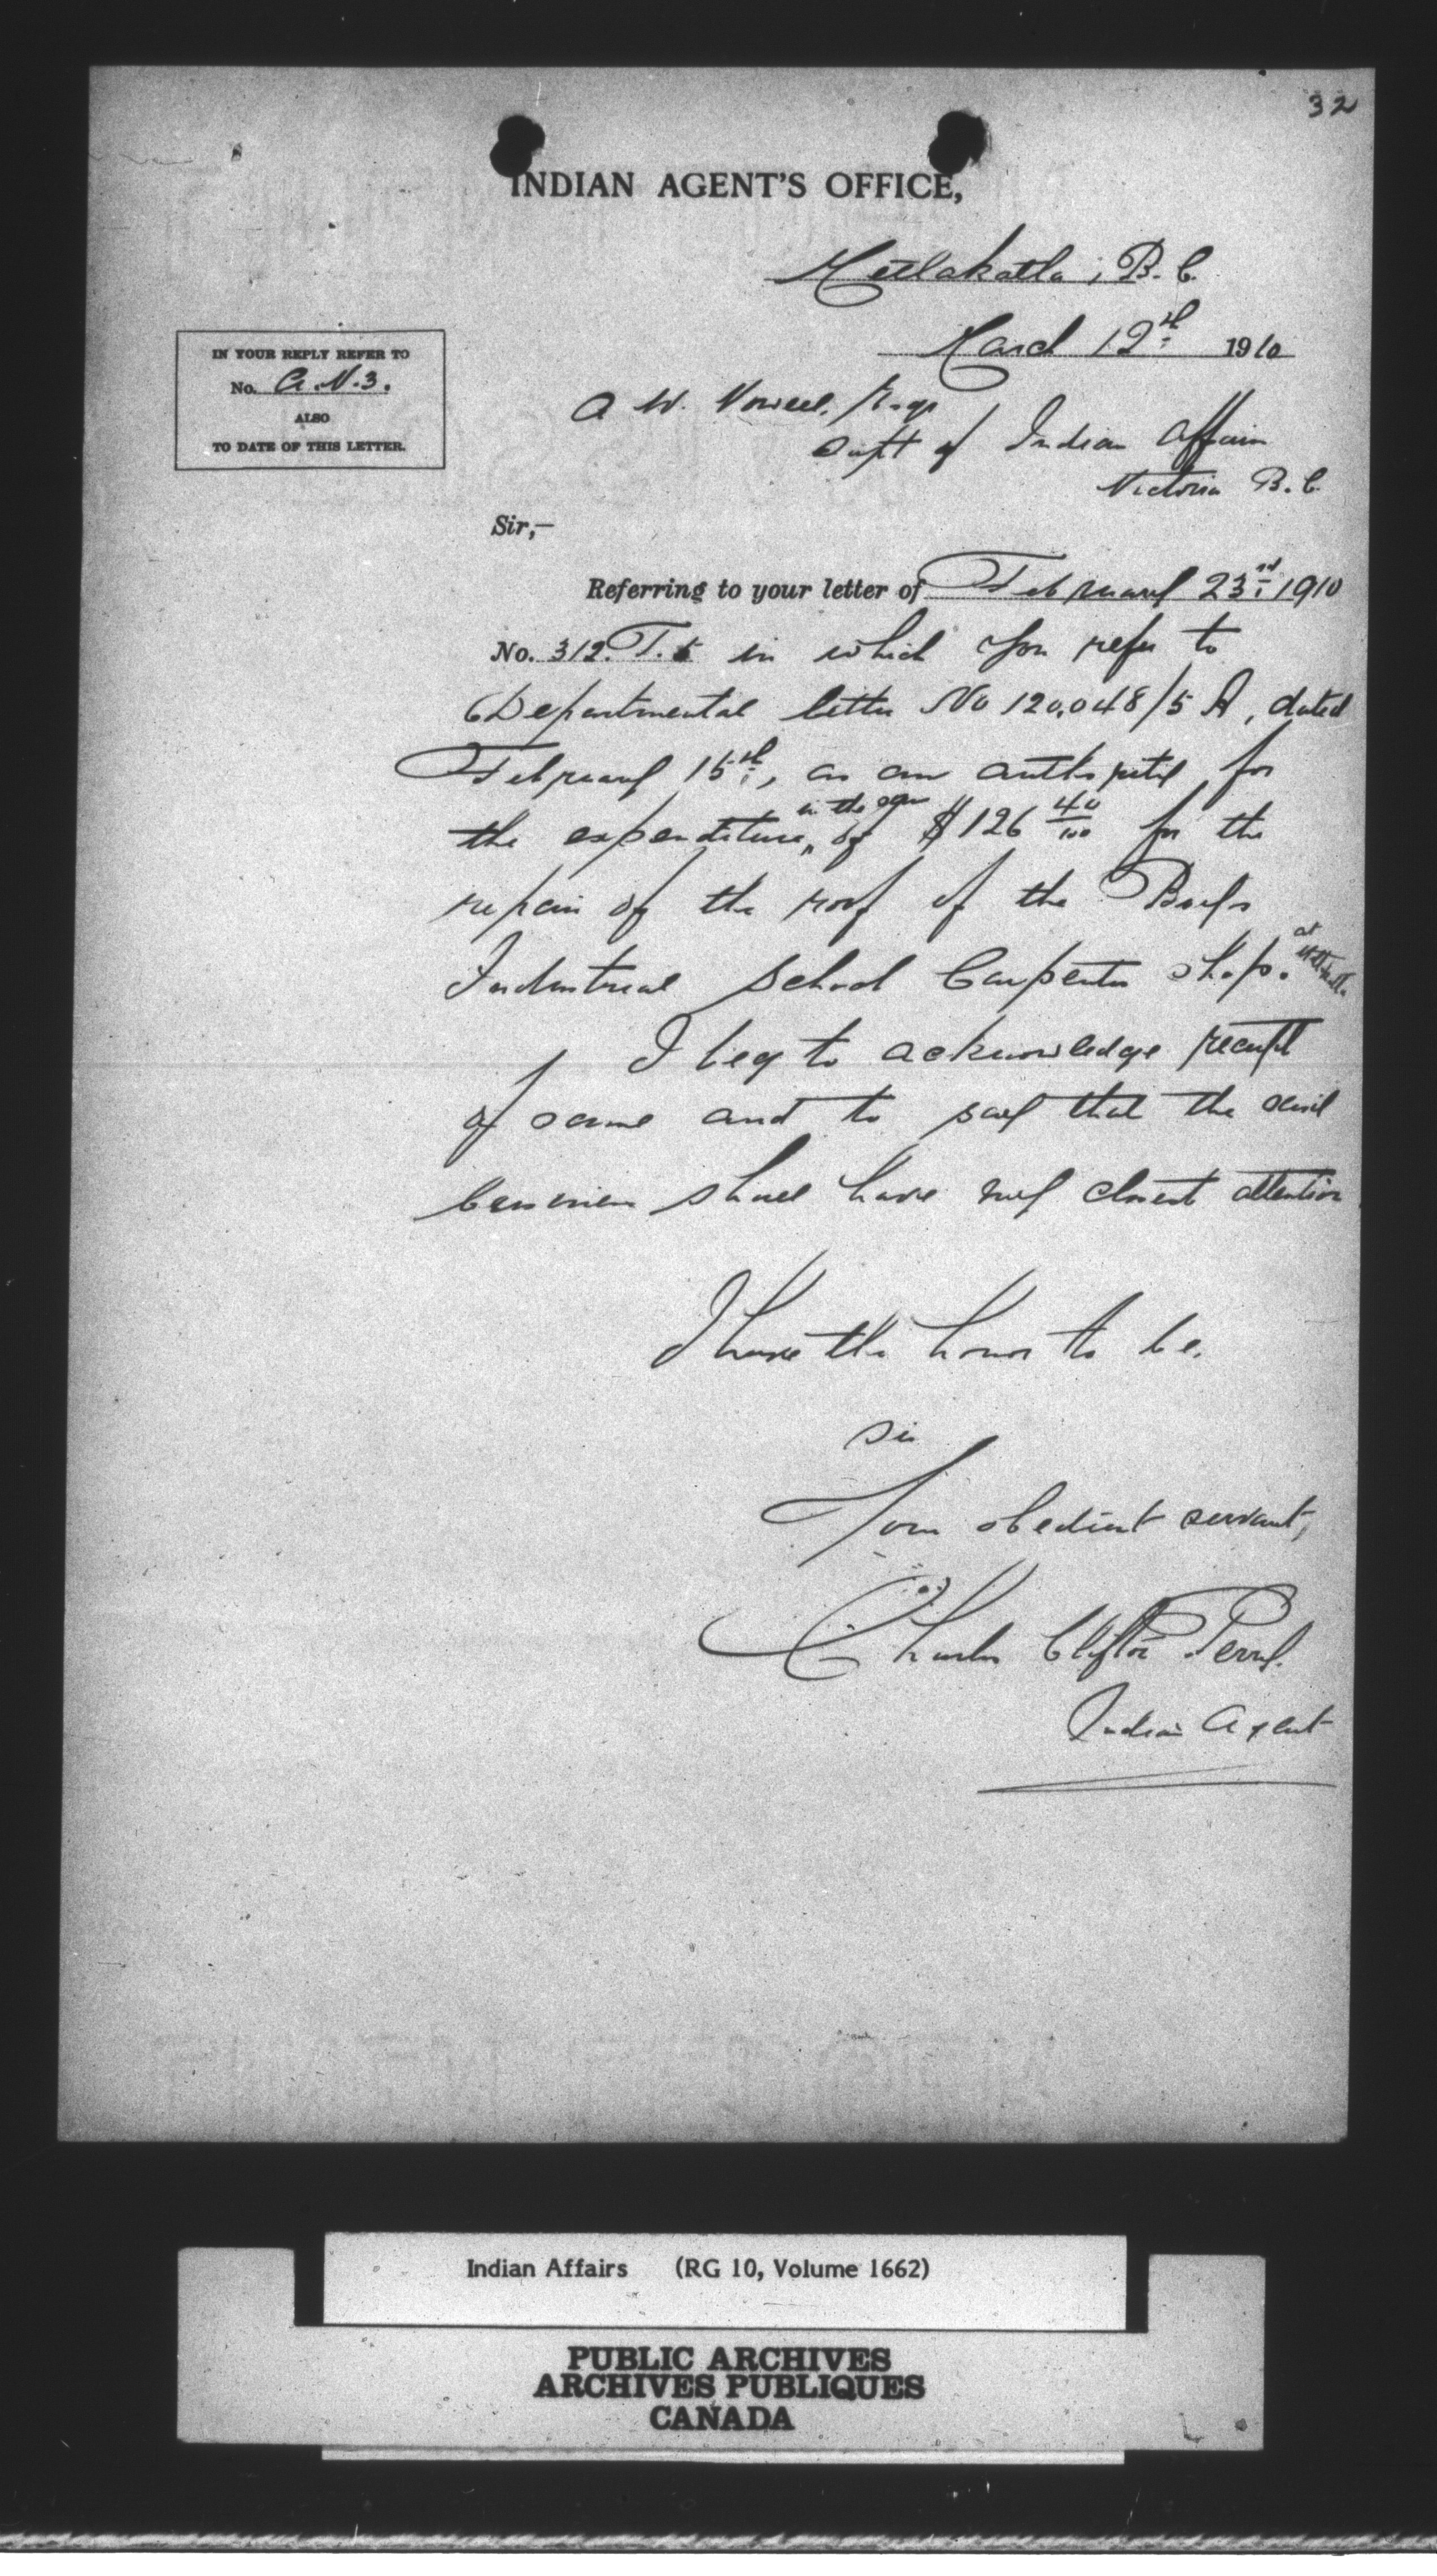 32
INDIAN AGENT'S OFFICE,
Metlakatla, B.C.
March 12th 1910
IN YOUR REPLY REFER TO
No. A.N.3.
ALSO
TO DATE OF THIS LETTER.
A. W. Vowell, Esqr
Supt of Indian Affairs
Victoria B.C.
Sir,—
Referring to your letter of February 23rd, 1910
No. 312. T.5 in which you refer to
Departmental letter No 120,048/5 A, dated
February 15th, as an authority for
the expenditure, in the sum of $126 40/100 for the
repair of the roof of the Boys
Industrial School Carpenter shop. at Metlakatla
I beg to acknowledge receipt
of same and to say that the said
business shall have my closest attention
I have the honor to be.
Sir
Your obedient servant,
Charles Clifton Perry.
Indian Agent
Indian Affairs (RG 10, Volume 1662)
PUBLIC ARCHIVES
ARCHIVES PUBLIQUES
CANADA